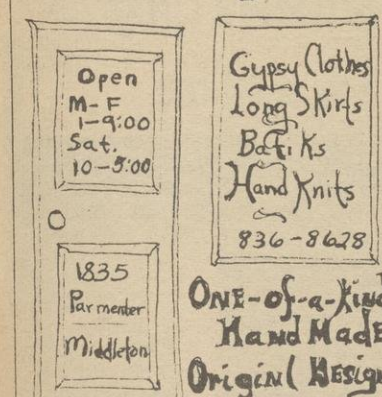 Open
M-F
1-9:00
Sat.
10-5:00
1835
Parmenter
Middleton
Gypsy Clothes
Long Skirts
Batiks
Hand Knits
836-8628
One-of-a-Kind
Hand Made
Original Design